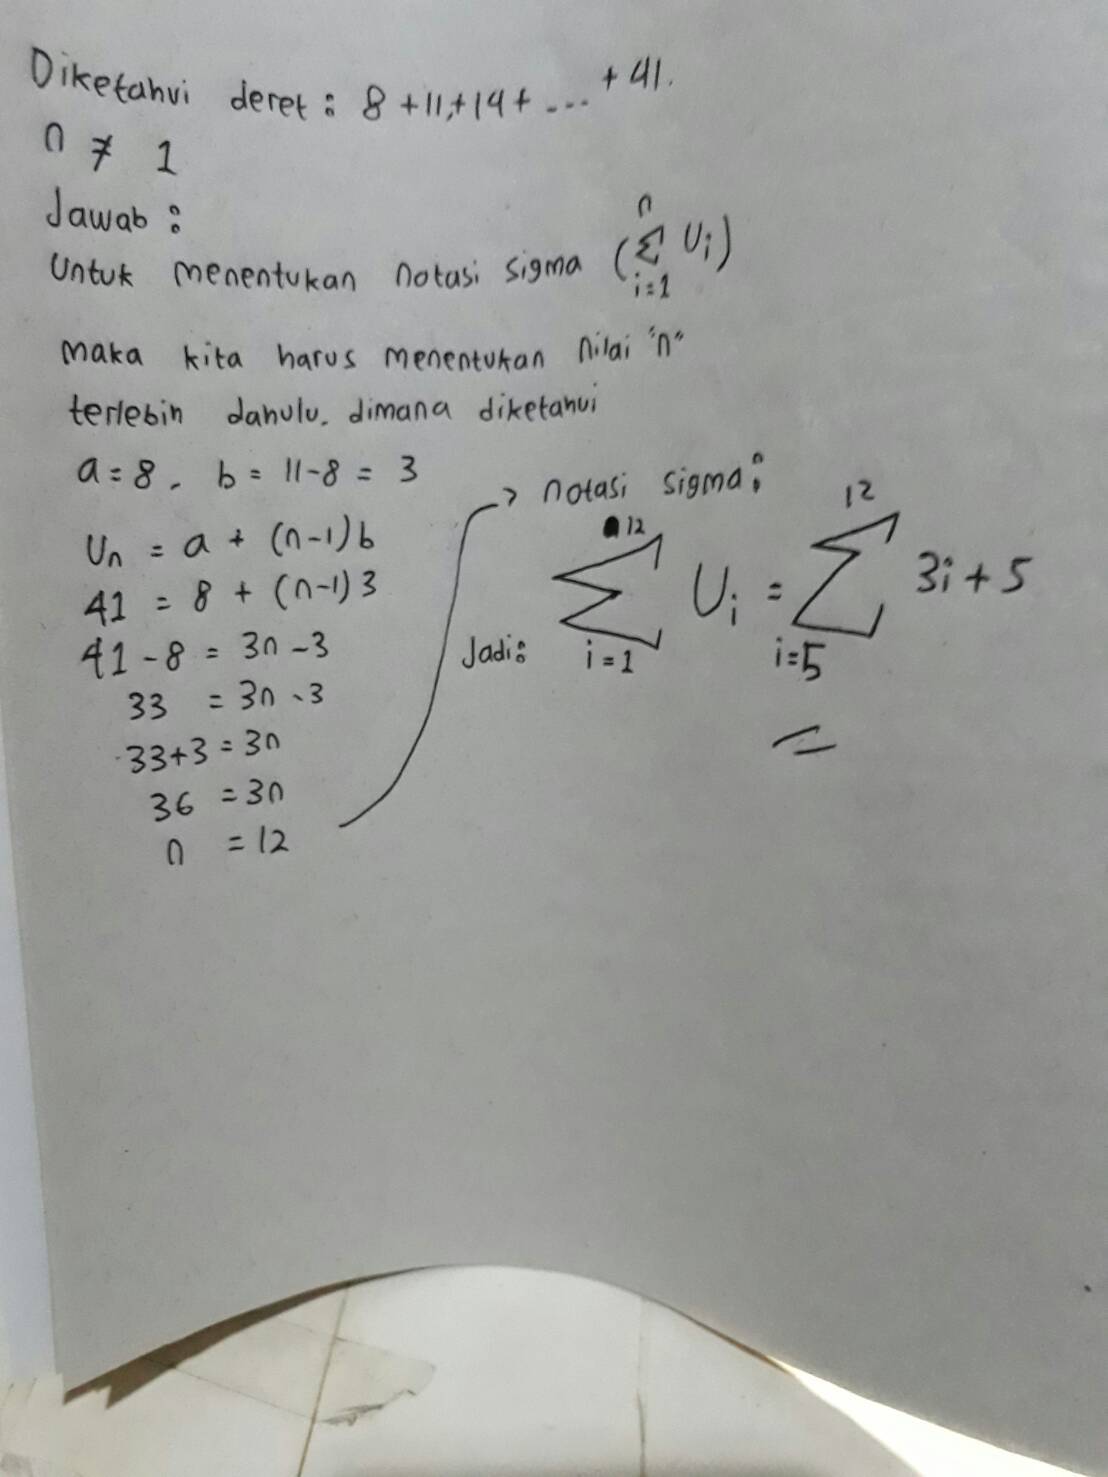 Diketahui deret : 8 + 11 + 14 + .... + 41.
n ≠ 1
Jawab :
Untuk menentukan notasi sigma (∑ᵢ₌₁ⁿ Uᵢ)
maka kita harus menentukan nilai "n"
terlebih dahulu. dimana diketahui
a = 8 , b = 11 - 8 = 3
Uₙ = a + (n-1) b
41 = 8 + (n-1) 3
41 - 8 = 3n - 3
33 = 3n - 3
33 + 3 = 3n
36 = 3n
n = 12
→ notasi sigma :
Jadi : ∑ᵢ₌₁¹² Uᵢ = ∑ᵢ₌₅¹² 3i + 5